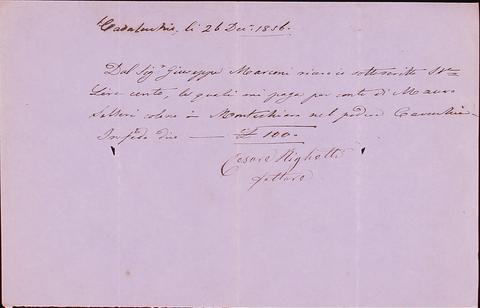 li 26 Dec. 1856.
Dal Sigr. Giuseppe Marconi ricevo io sottoscritto
Lire cento, le quali mi paga per conto di Mauro
colono in nel podere
In fede dico — £ 100.-
Cesare Righetti
fattore